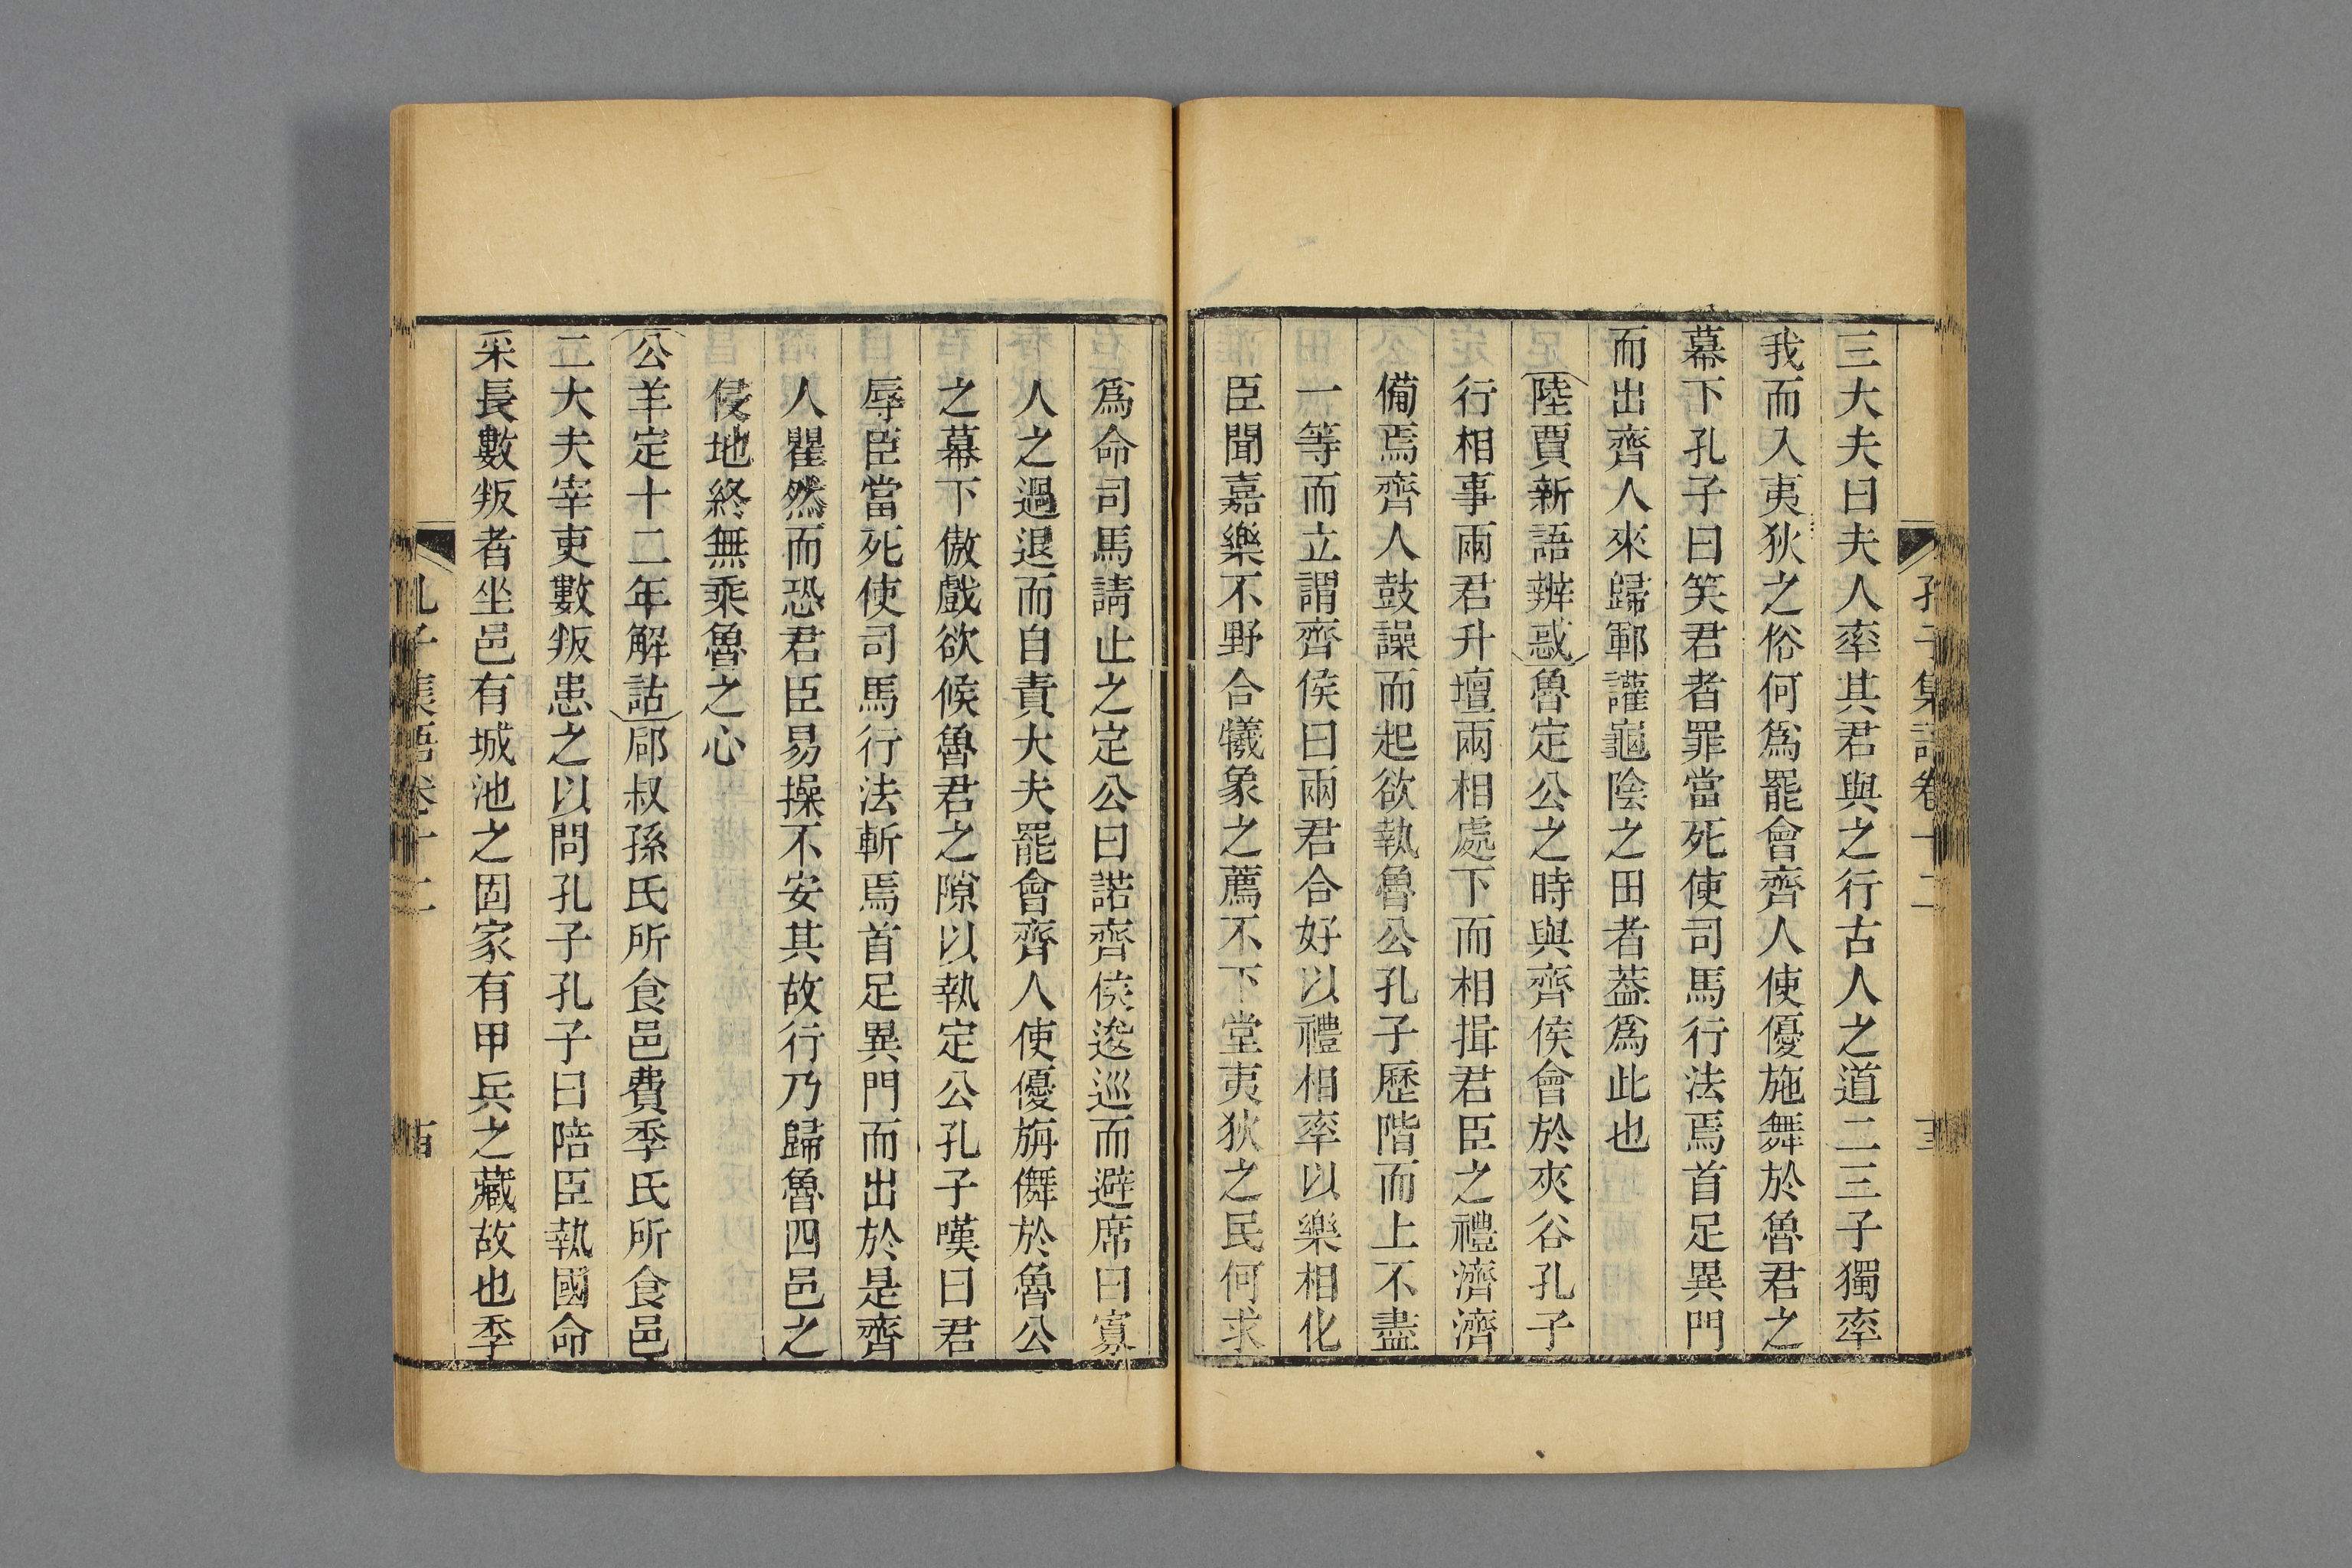 孔子集語卷十二
三大夫曰夫人率其君與之行古人之道二三子獨率
我而入夷狄之俗何爲罷會齊人使優施舞於魯君之
幕下孔子曰笑君者罪當死使司馬行法焉首足異門
而出齊人來歸鄆讙龜陰之田者葢爲此也
陸賈新語辨惑魯定公之時與齊侯會於夾谷孔子
行相事兩君升壇兩相處下而相揖君臣之禮濟濟
備焉齊人鼓譟而起欲執魯公孔子歷階而上不盡
一等而立謂齊侯曰兩君合好以禮相率以樂相化
臣聞嘉樂不野合犧象之薦不下堂夷狄之民何求
爲命司馬請止之定公曰諾齊侯逡巡而避席曰寡
人之過退而自責大夫罷會齊人使優旃儛於魯公
之幕下傲戲欲候魯君之隙以執定公孔子嘆曰君
辱臣當死使司馬行法斬焉首足異門而出於是齊
人瞿然而恐君臣易操不安其故行乃歸魯四邑之
侵地終無乘魯之心
公羊定十二年解詁郈叔孫氏所食邑費季氏所食邑
二大夫宰吏數叛患之以問孔子孔子曰陪臣執國命
采長數叛者坐邑有城池之固家有甲兵之藏故也季
孔子集語卷十二